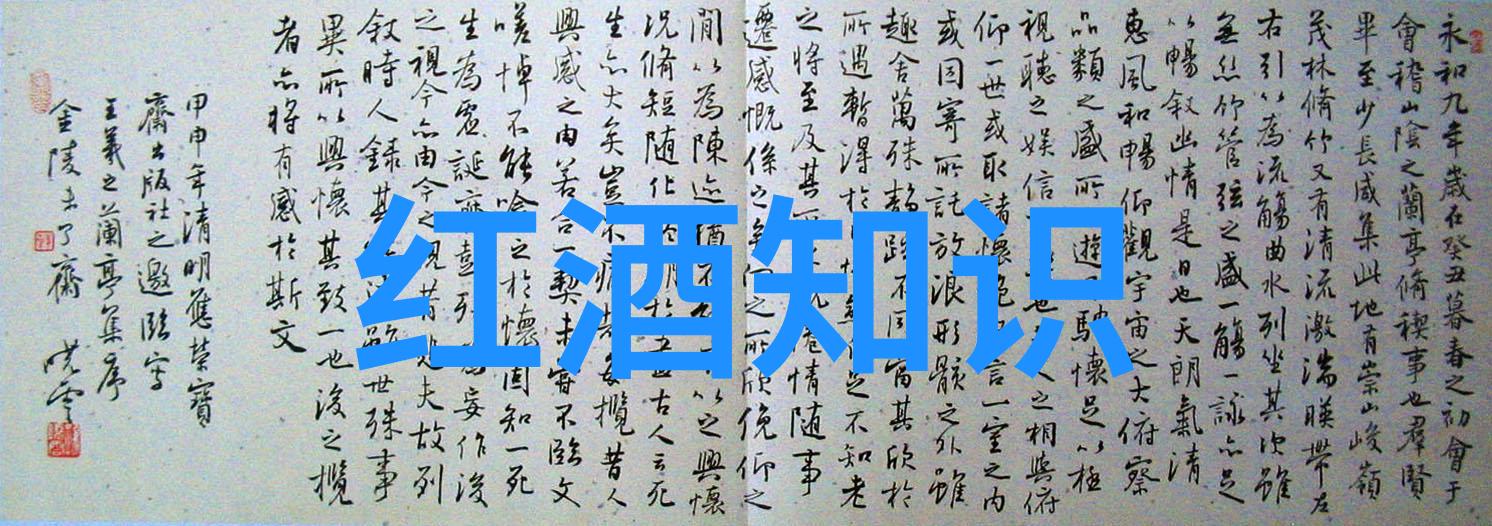 永和九年歲在癸丑暮春之初會于
會稽山陰之蘭亭脩稧事也群賢
畢至少長咸集此地有崇山峻嶺
茂林脩竹又有清流激湍暎帶左
右引以為流觴曲水列坐其次雖
無絲竹管弦之盛一觴一詠亦足
以暢敘幽情是日也天朗氣清
惠風和暢仰觀宇宙之大俯察
品類之盛所遊騁懷足以極
視聽之娛信也人之相與俯
仰一世或取諸懷抱言一室之内
或因寄所託放浪形骸之外雖
趣舍萬殊靜躁不同當其欣於
所遇暫得於足不知老
之將至及其倦情随事
遷感慨係之矣向之所欣俛仰之
間以為陳迹猶不以之興懷
況脩短随化期於古人云死
生亦大矣豈不痛哉每攬昔人
興感之由若合一契未嘗不臨文
嗟悼不能喻之於懷固知一死
生為虛誕齊彭為妄作後
之視今亦由今之視昔悲夫故列
敘時人錄其雖世殊事
異所以興懷其致一也後之攬
者亦將有感於斯文
甲申年清明應榮寶
齋出版社之邀臨寫
王羲之蘭亭集序
金陵未了齋
红酒知识